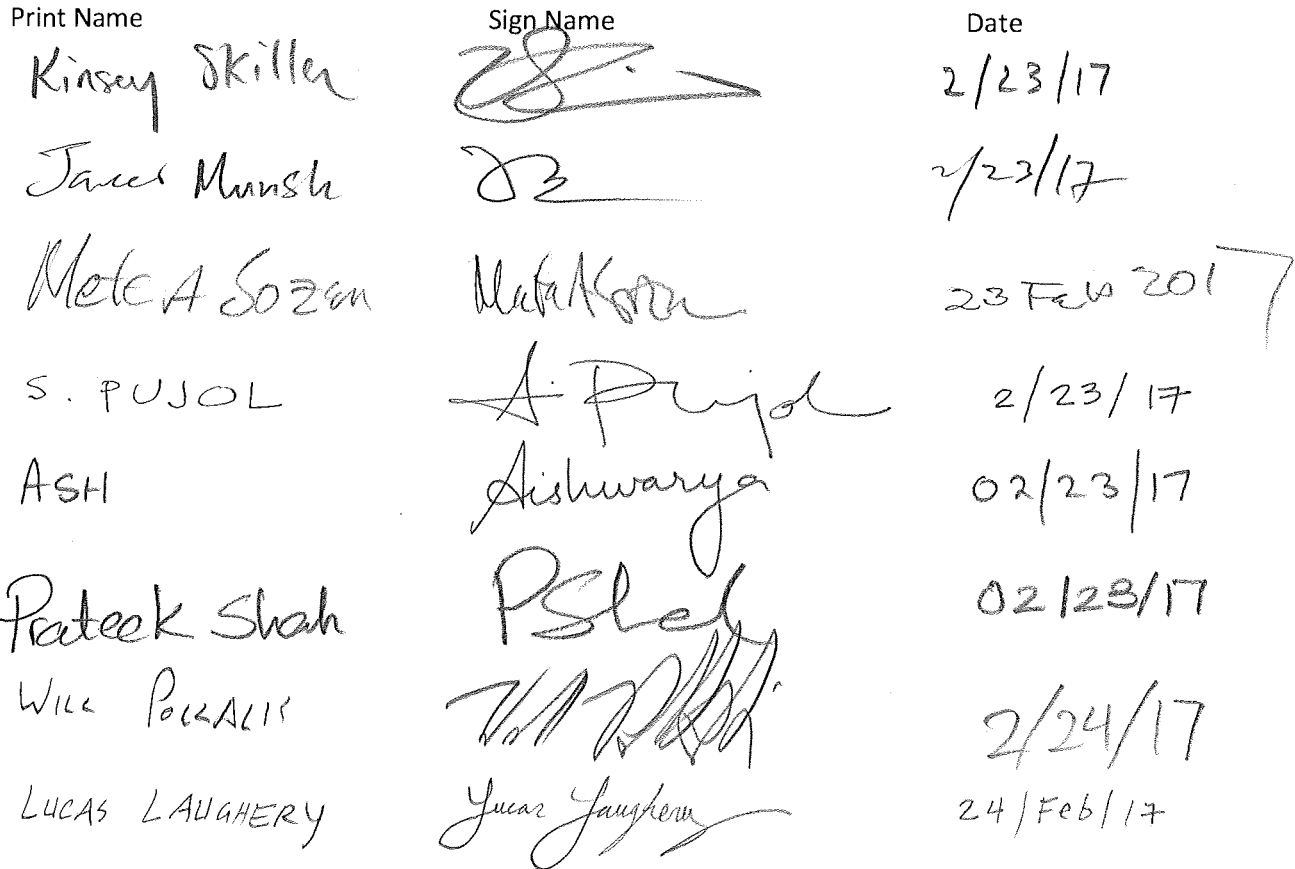 Print Name Sign Name Date
Kinsey Skillen 2/23/17
James Munsh 2/23/17
Mete A Sozen Mete A Sozen 23 Feb 2017
S. PUJOL S. Pujol 2/23/17
ASH Aishwarya 02/23/17
Prateek Shah PShah 02/23/17
WILL POLLALIS 2/24/17
LUCAS LAUGHERY Lucas Laughery 24/Feb/17